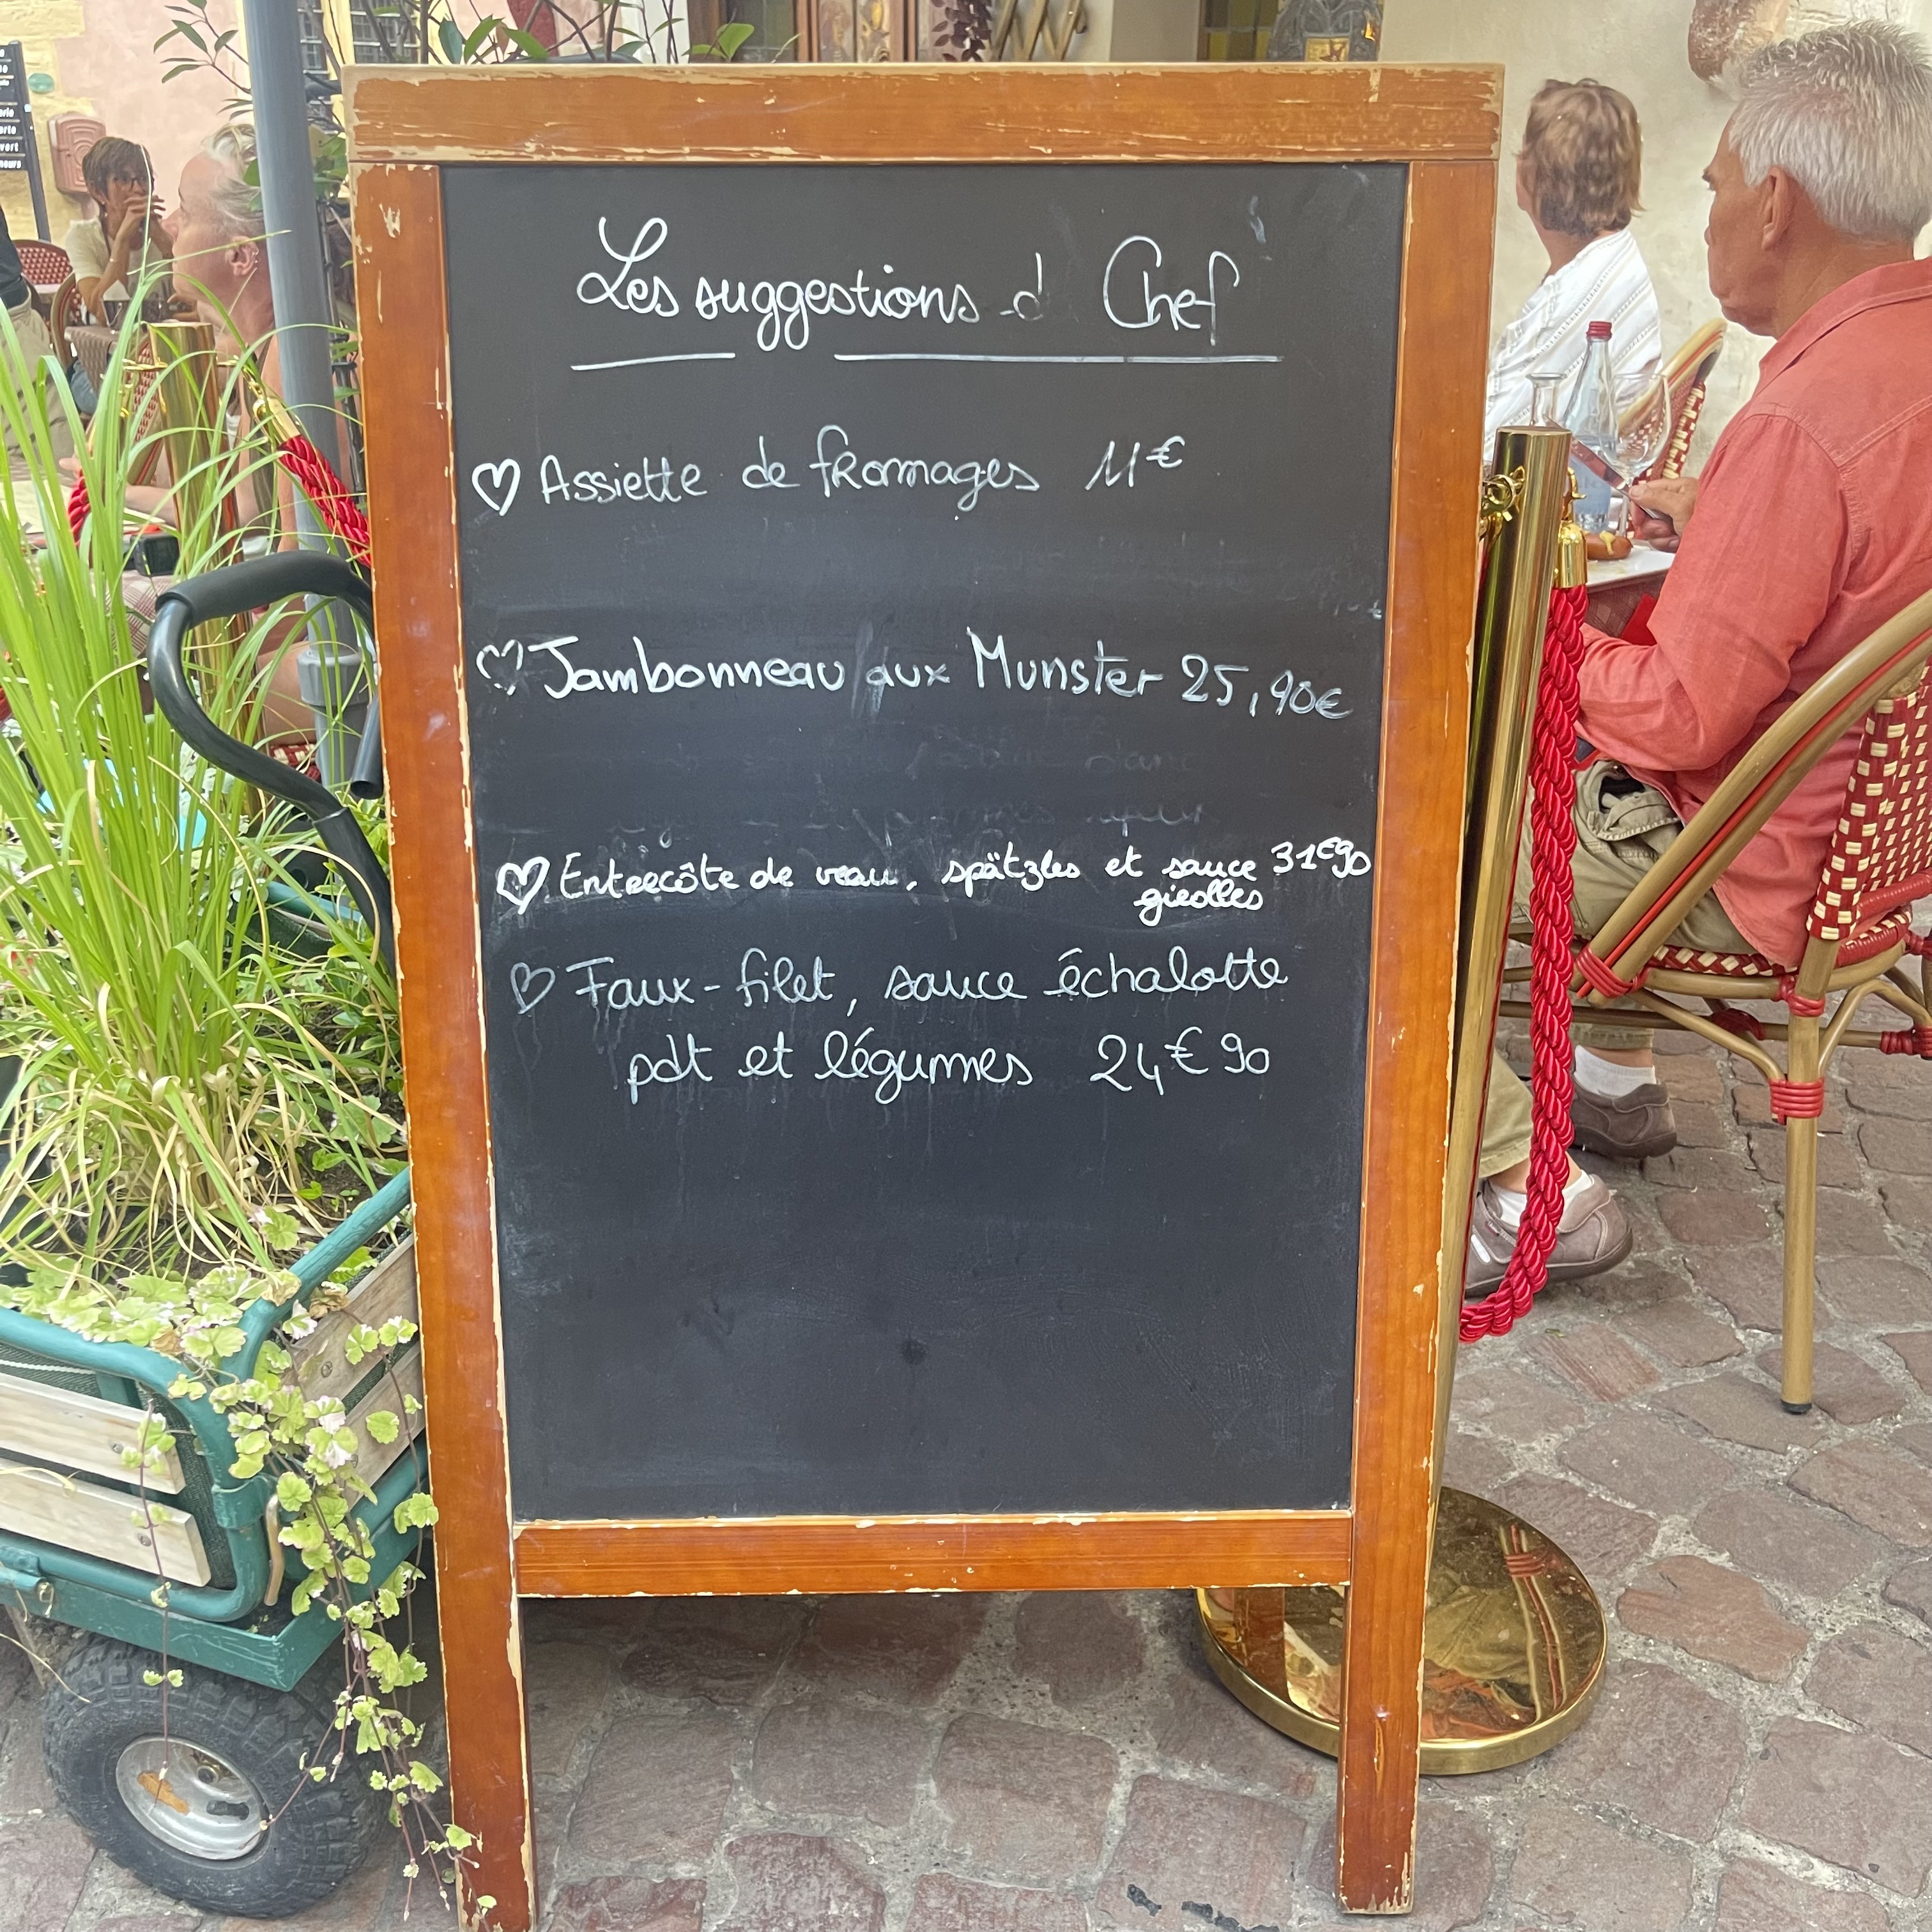 Les suggestions d Chef
Assiette de fromages 11€
Jambonneau aux Munster 25,90€
Entrecôte de veau, spätzles et sauce 31€90
girolles
Faux-filet, sauce échalotte
pdt et légumes 24€90